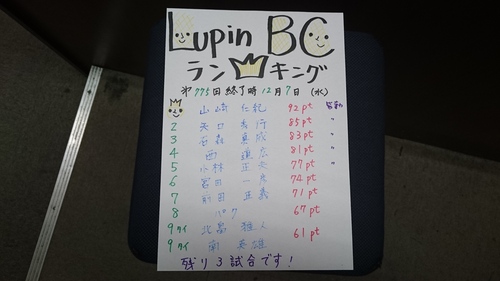 Lupin BC
ランキング
第775回終了時12月7日(水)
山崎 仁紀 92pt
2 矢口 孝行 85pt 〃
3 石森 真成 83pt 〃
4 西 廣 81pt 〃
5 小林 正 77pt 〃
6 宮田 一 74pt
7 前田 正義 71pt
8 パク 67pt
9タイ 北島 雅人 61pt
9タイ 南 英雄
残り3試合です!